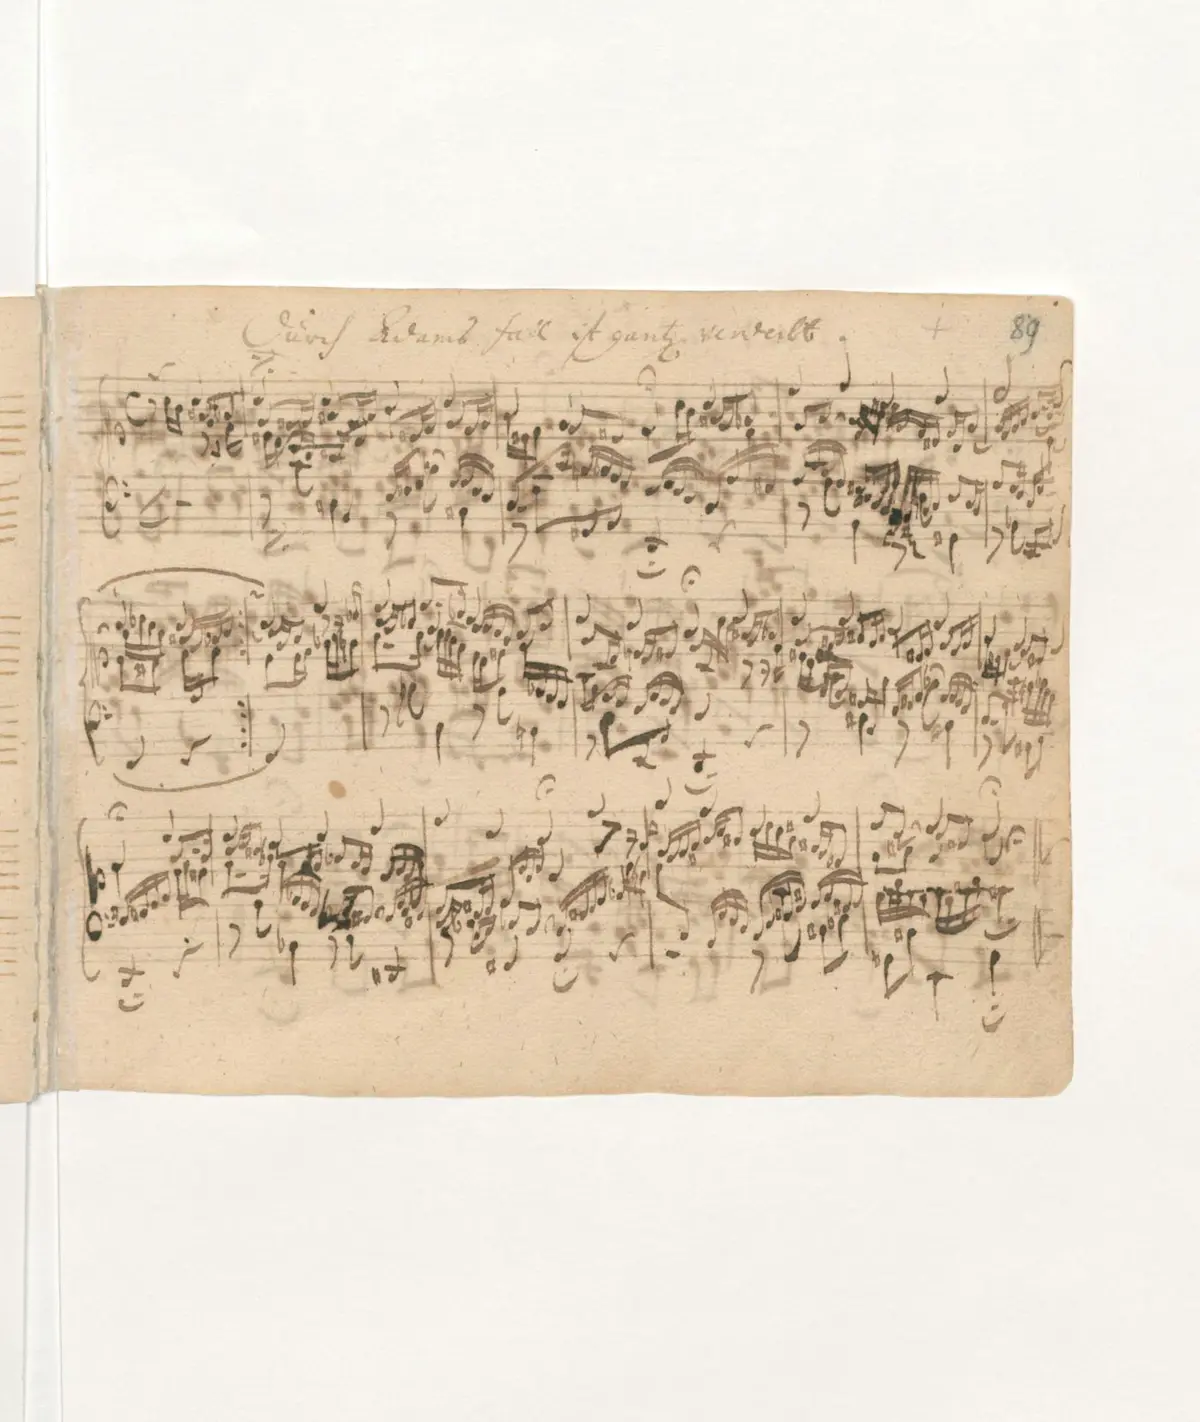 Durch Adams fall ist gantz verderbt. 89